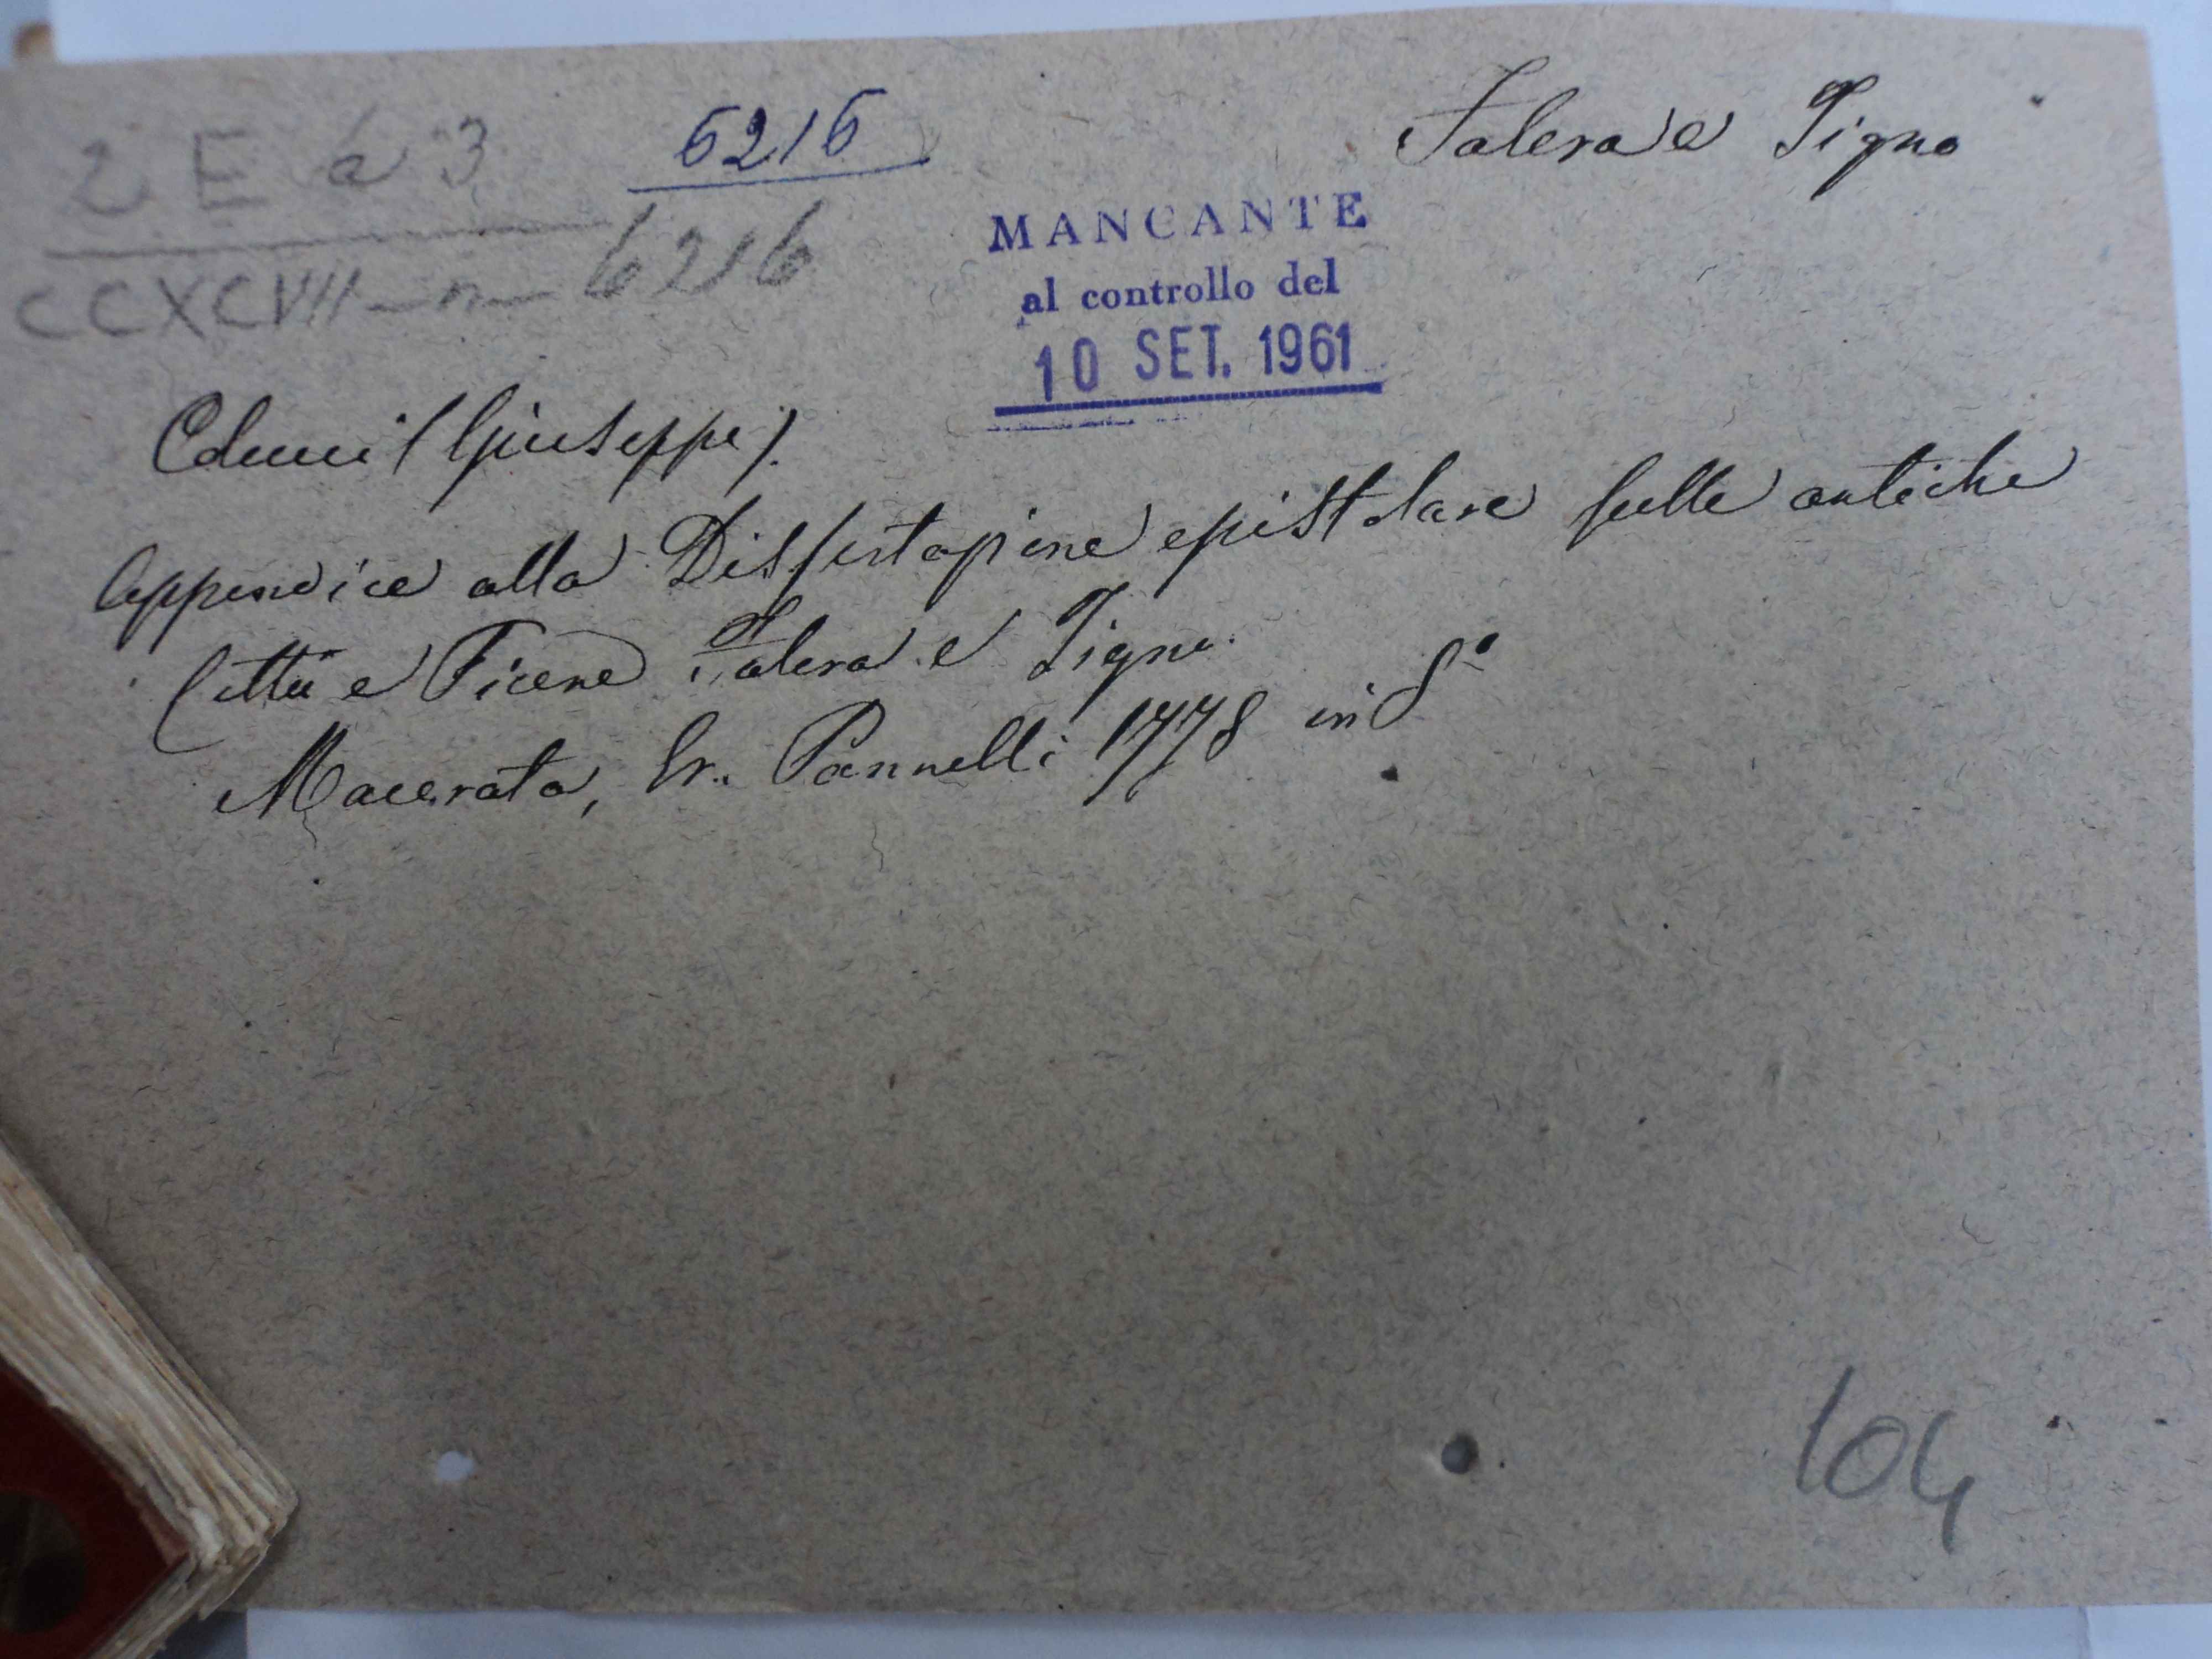 2 E a 3
6216
Falera e Tigno
CCXCVII - n - 6216
MANCANTE
al controllo del
10 SET. 1961
Colucci (Giuseppe).
Appendice alla Dissertazione epistolare sulle antiche
Città e Picene Falera e Tigno.
Macerata, Pannelli 1778 in 8°
104